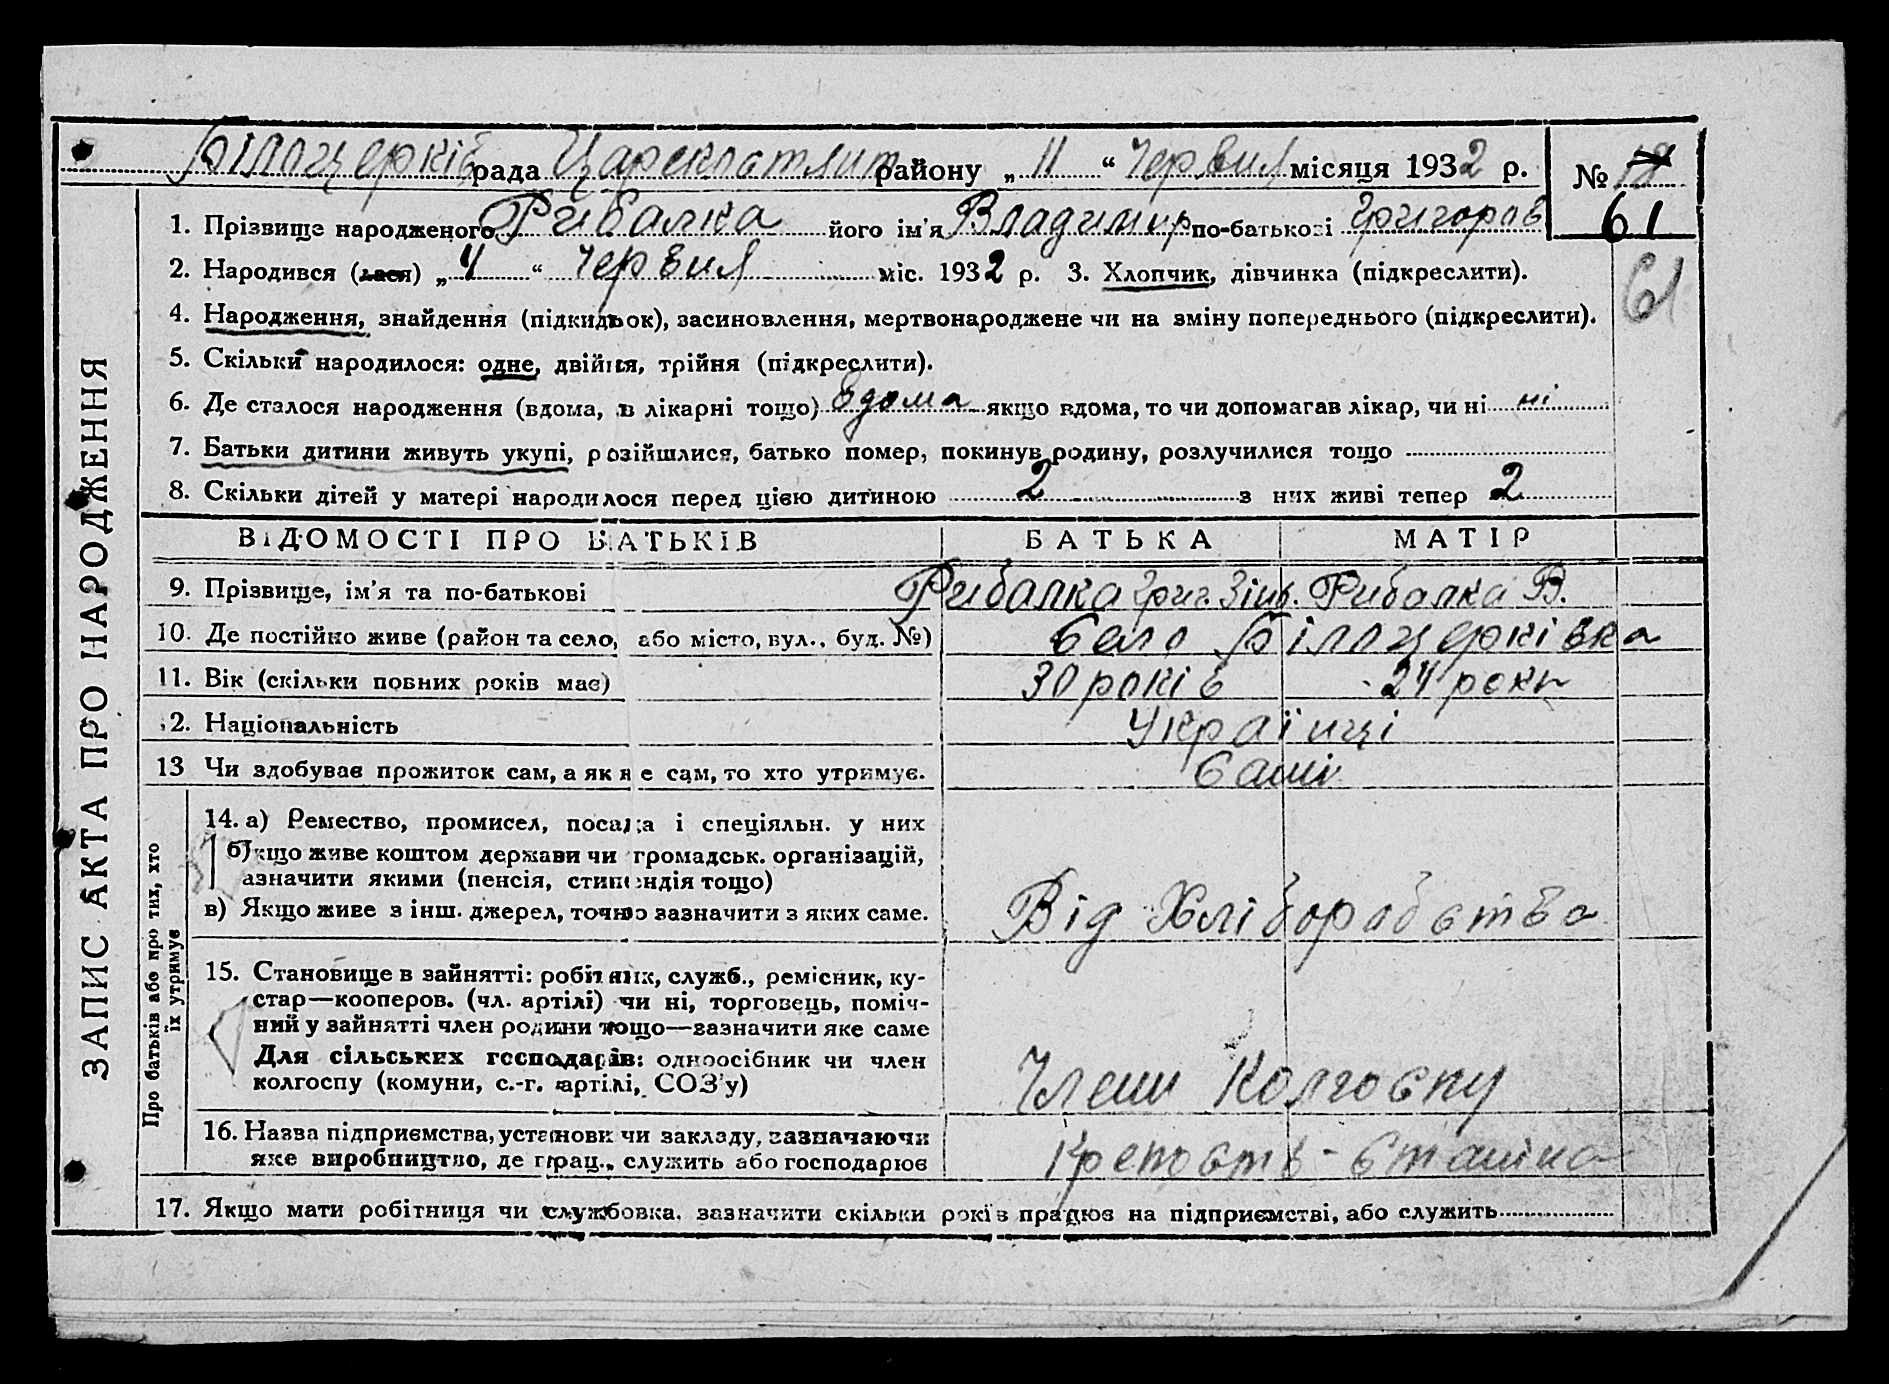 Білоцерків рада Царекостянт району „ 11 “ Червня місяця 1932 р. № 12
1. Прізвище народженого Рибалка його ім'я Владимир по-батькові Григоров 61
2. Народився (лася) „ 4 “ Червня міс. 1932 р. 3. Хлопчик, дівчинка (підкреслити). 61
4. Народження, знайдення (підкидьок), засиновлення, мертвонароджене чи на зміну попереднього (підкреслити).
5. Скільки народилося: одне, двійня, трійня (підкреслити).
6. Де сталося народження (вдома, в лікарні тощо) вдома якщо вдома, то чи допомагав лікар, чи ні ні
7. Батьки дитини живуть укупі, розійшлися, батько помер, покинув родину, розлучилися тощо
8. Скільки дітей у матері народилося перед цією дитиною 2 з них живі тепер 2
ЗАПИС АКТА ПРО НАРОДЖЕННЯ
ВІДОМОСТІ ПРО БАТЬКІВ БАТЬКА МАТІР
9. Прізвище, ім'я та по-батькові Рибалка Григ. Зінв. Рибалка В.
10. Де постійно живе (район та село, або місто, вул., буд. №) село Білоцерківка
11. Вік (скільки повних років має) 30 років 24 роки
12. Національність Українці
13 Чи здобував прожиток сам, а як не сам, то хто утримує. Самі
Про батьків або про тих, хто
їх утримує
14. а) Ремество, промисел, посада і спеціяльн. у них
б) Якщо живе коштом держави чи громадськ. організацій,
азначити якими (пенсія, стипендія тощо)
в) Якщо живе з інш. джерел, точно зазначити з яких саме. Від Хліборобства
15. Становище в зайнятті: робітник, служб., ремісник, ку-
стар—кооперов. (чл. артілі) чи ні, торговець, поміч-
ний у зайнятті член родини тощо—зазначити яке саме
Для сільських господарів: одноосібник чи член
колгоспу (комуни, с.-г. артілі, СОЗ'у) Члени Колгоспу
16. Назва підприємства, установи чи закладу, зазначаючи
яке виробництво, де прац., служить або господарює Крепость-Сталіна
17. Якщо мати робітниця чи службовка, зазначити скільки років працює на підприємстві, або служить